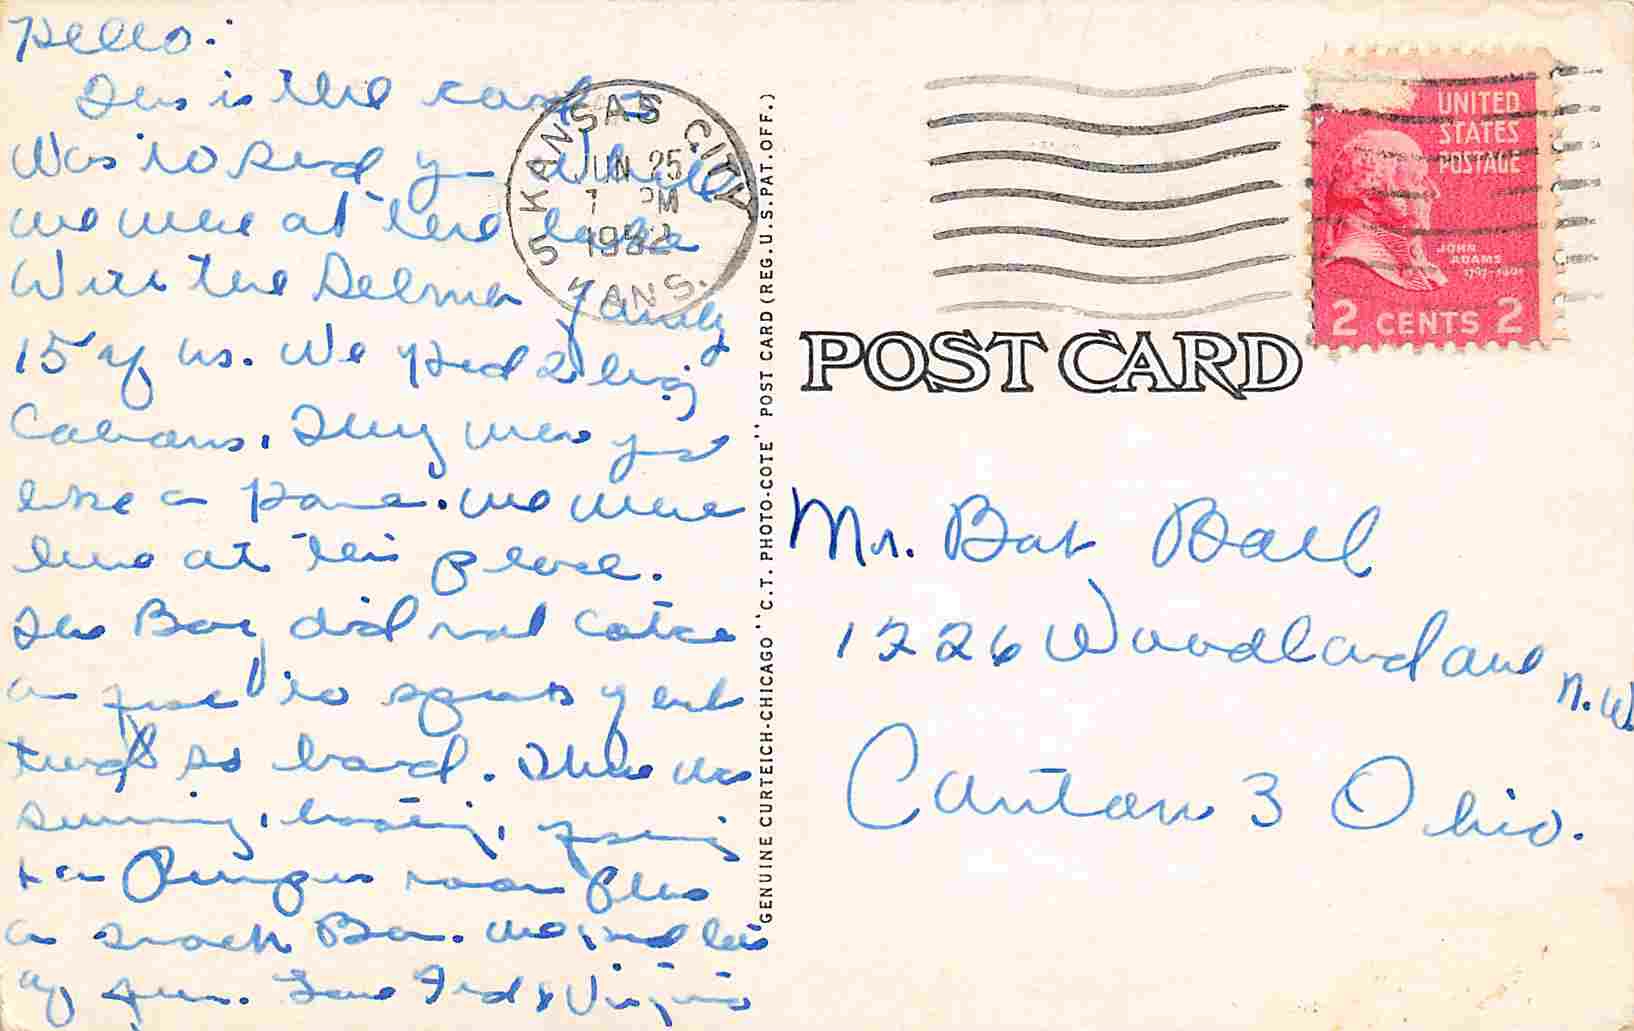 Hello:
This is the card I
Was to send you while
we were at the lake
With the Delmer family
15 of us. We had 2 big
Cabins. They were just
like a home. we were
here at this place.
The Boy did not catch
a fish to
so hard. There was
swimming, boating, fishing
+ a Rumpus room Plus
a snack Bar. we had lots
of fun. Love Fred & Virginia
5 KANSAS CITY
JUN 25
7 PM
1952
KANS.
UNITED
STATES
POSTAGE
JOHN
ADAMS
1797-1801
2 CENTS 2
POST CARD
GENUINE CURTEICH-CHICAGO "C.T. PHOTO-COTE" POST CARD (REG. U.S. PAT. OFF.)
Mr. Bat Ball
1226 Woodland Ave
N.W.
Canton 3 Ohio.